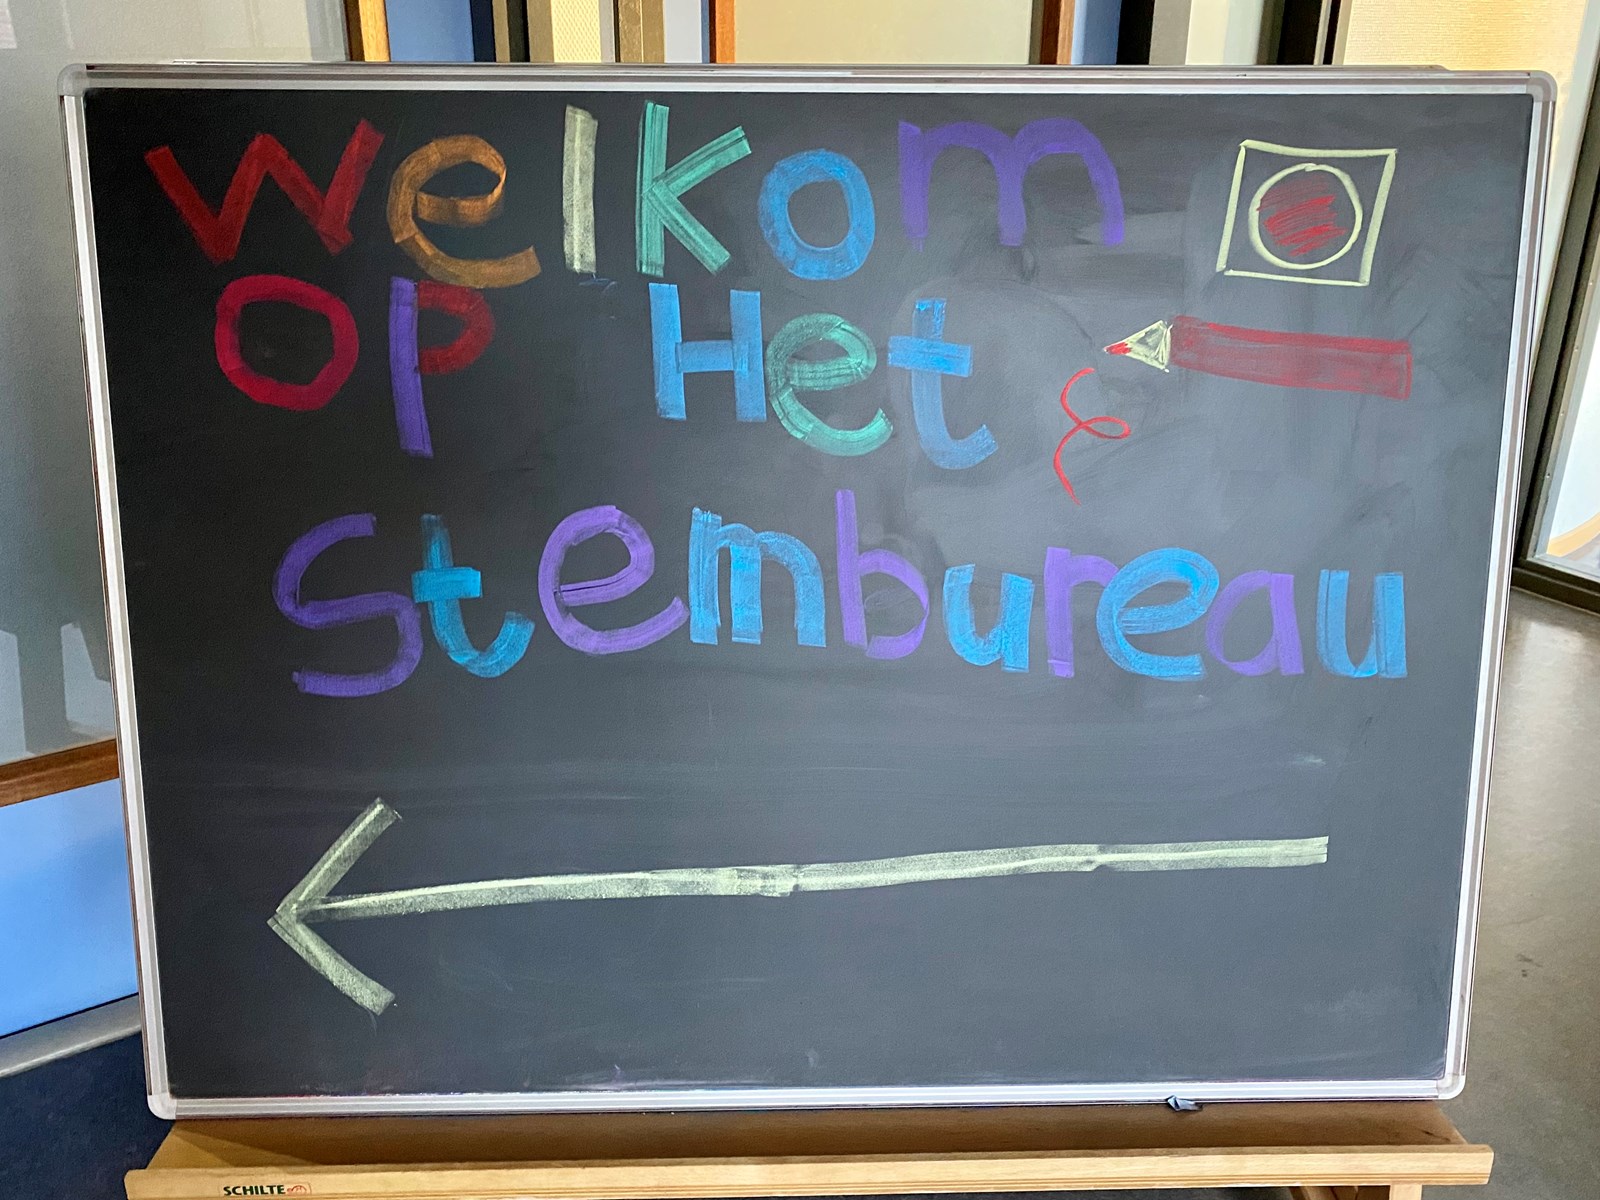 welkom
op Het
Stembureau
SCHILTE